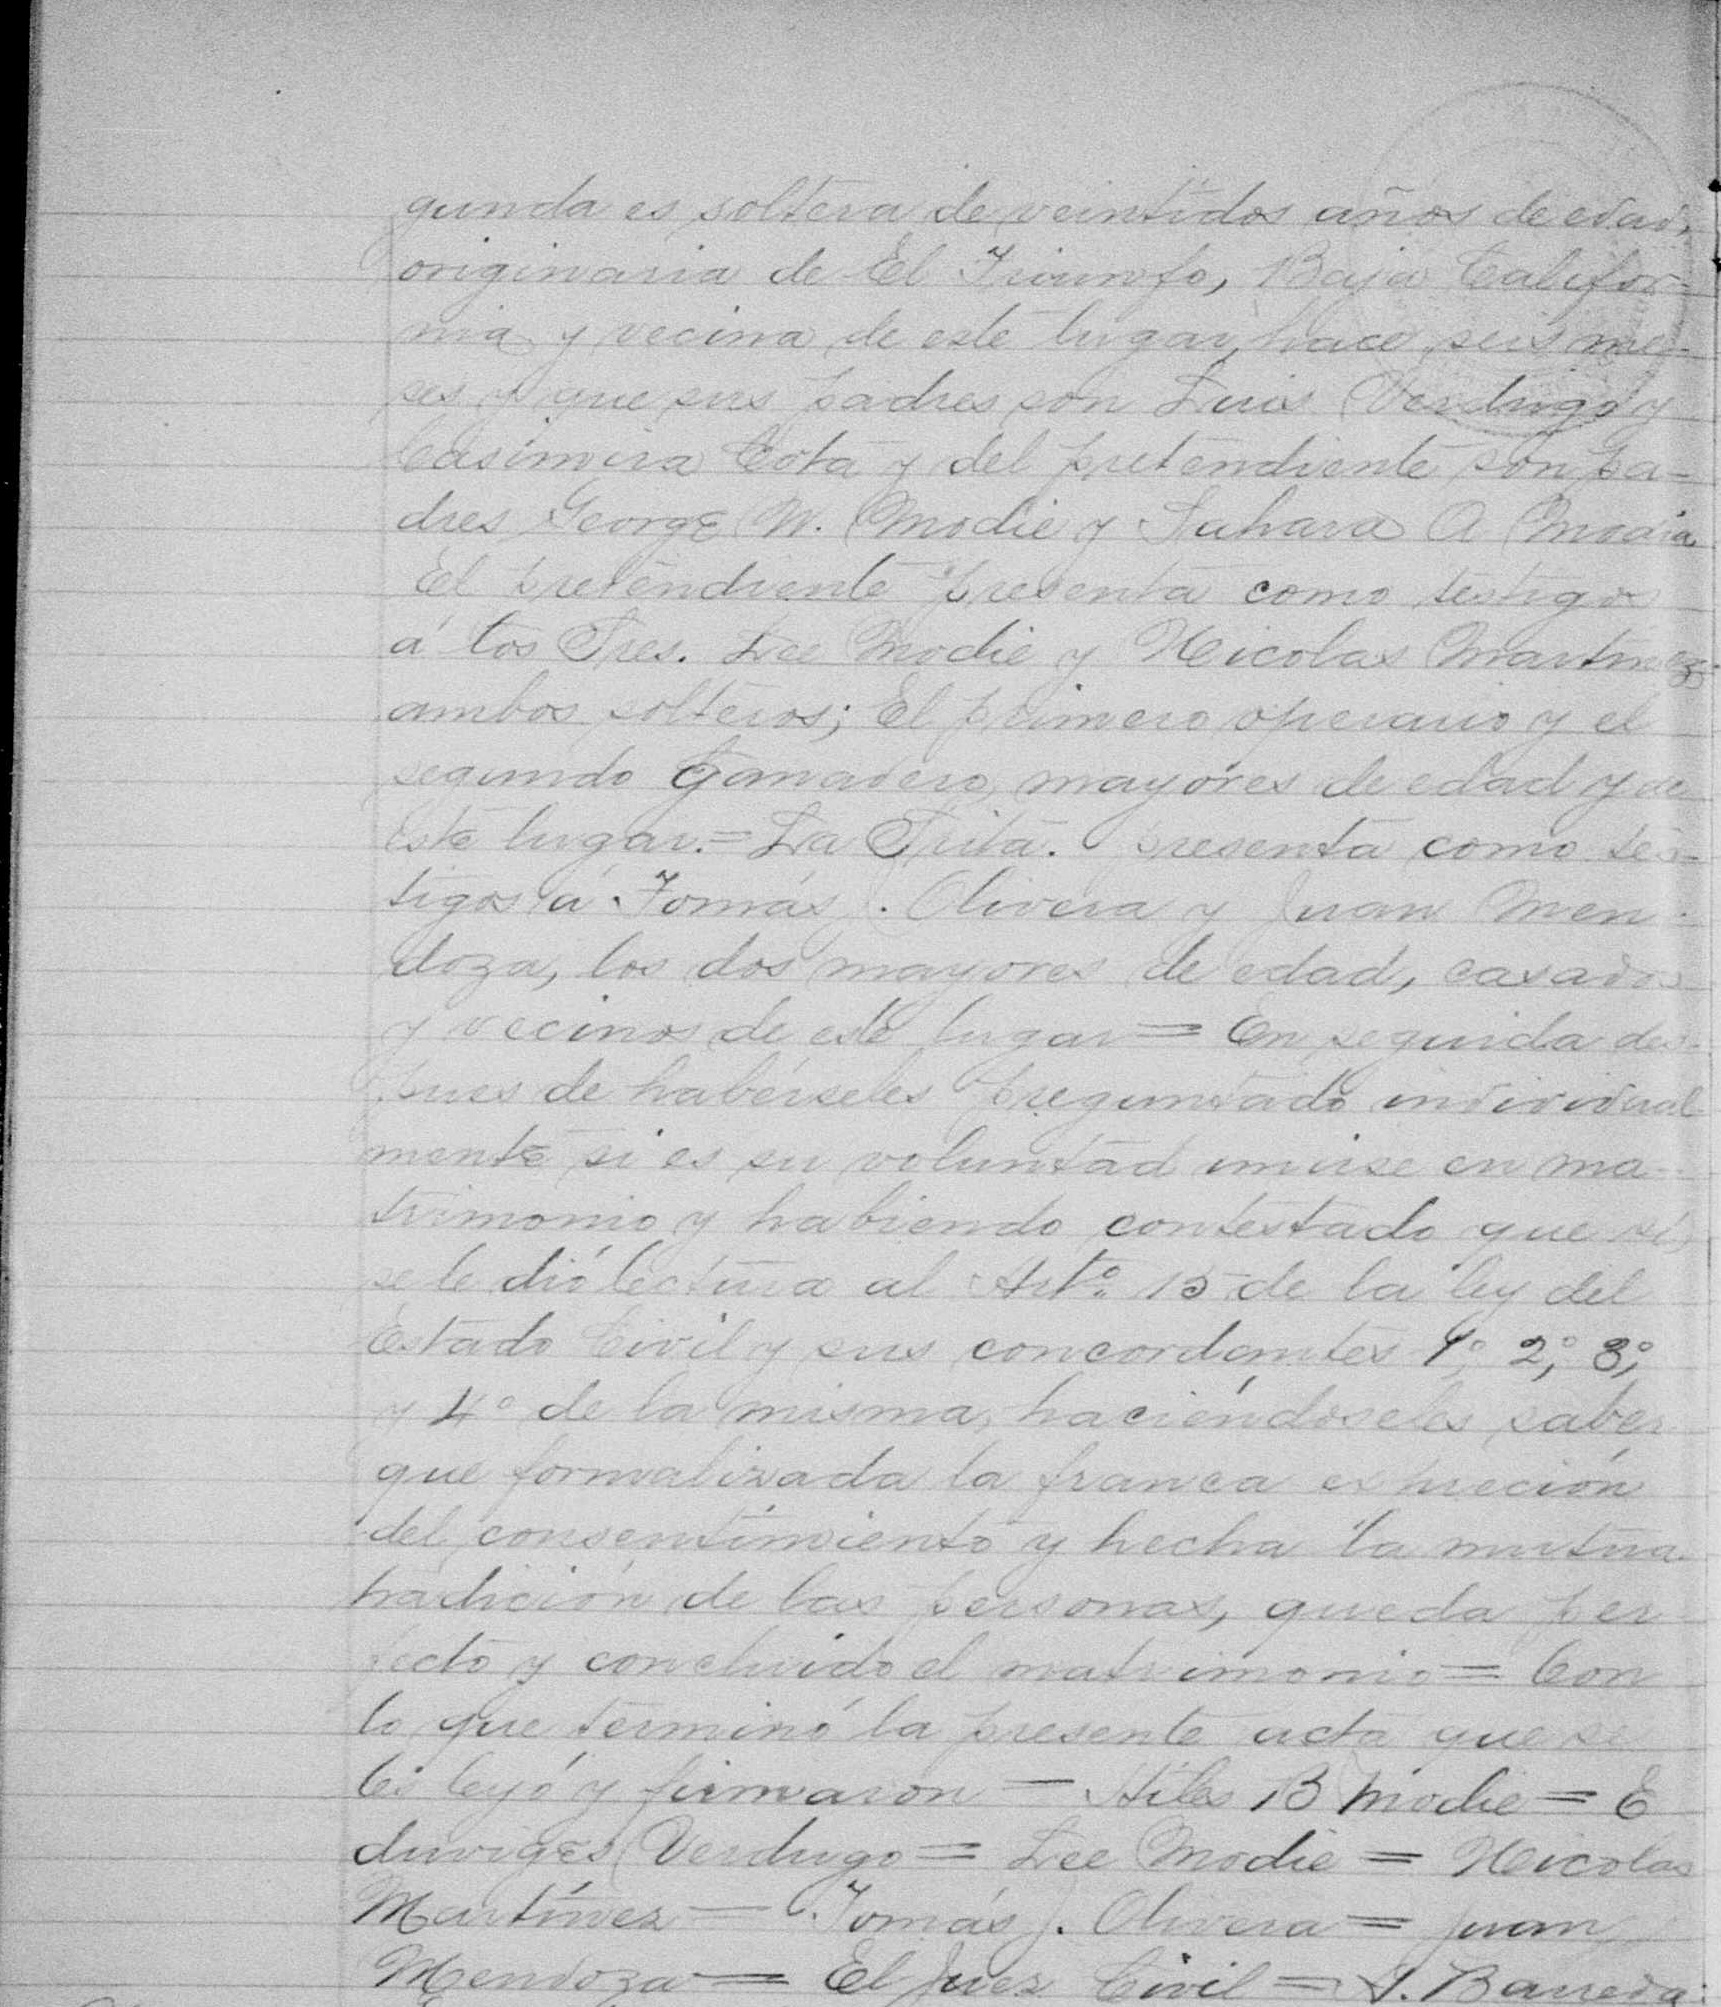 gunda es soltera de veintidos años de edad,
originaria de El Triunfo, Baja Califor-
nia y vecina de este lugar, hace seis me-
ses y que sus padres son Luis Verdugo y
Casimira Cota y del pretendiente son pa-
dres George W. Modie y Suhara A Modia
El pretendiente presenta como testigos
á los Sres. Lee Modie y Nicolas Martinez
ambos solteros; El primero operario y el
segundo Ganadero, mayores de edad y de
este lugar.= La Srita. presenta como tes-
tigos á Tomás J. Olivera y Juan Men-
doza, los dos mayores de edad, casados
y vecinos de este lugar = En seguida des-
pues de habérseles preguntado individual
mente si es su voluntad unirse en ma-
trimonio y habiendo contestado que sí,
se le dió lectura al Artº. 15 de la ley del
Estado Civil y sus concordantes 1º, 2º, 3º,
y 4º de la misma, haciéndoseles saber
que formalizada la franca expreción
del consentimiento y hecha la mutua
tradición de las personas, queda per
fecto y concluido el matrimonio = Con
lo que terminó la presente acta que se
les leyó y firmaron = Hiles B Modie = E
duviges Verdugo = Lee Modie = Nicolas
Martínez = Tomás J. Olivera = Juan
Mendoza = El Juez Civil = Barreda.